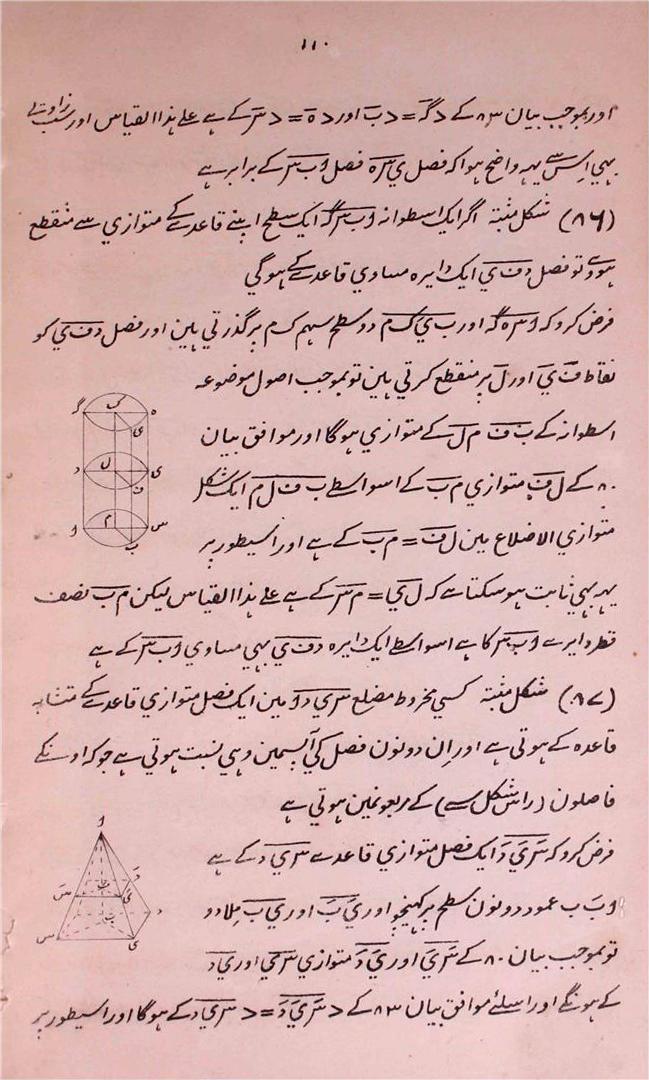 ۱۱۰
اور بموجب بیان ۸۳ کے > گَ = > بَ اور > ہَ = > سَ کے ہے علے ہذا القیاس اور سب زاویئے
بہی اِس سے یہہ واضح ہوا کہ فصل ي س ہ فصل و ب س کے برابر ہے
(۸۶) شکل مثبتہ اگر ایک اسطوانہ و ب س گہ ایک سطح اپنے قاعدے کے متوازي سے منقطع
ہووے تو فصل د ف ي ایک دایرہ مساوي قاعدے کے ہوگي
فرض کرو کہ و س ہ گہ اور ب ي ک م دو سطح سہم ک م پر گذرتي ہین اور فصل د ف ي کو
نقاط ف ي اور ل پر منقطع کرتي ہین تو بموجب اصول موضوعہ
اسطوانہ کے ب ف م ل کے متوازي ہوگا اور موافق بیان
۸۰ کے ل ف متوازي م ب کے اسواسطے ب ف ل م ایک شکل
متوازي الاضلاع مین ل ف = م ب کے ہے اور اسیطور پر
یہہ بہي ثابت ہو سکتا ہے کہ ل ي = م س کے ہے علے ہذا القیاس لیکن م ب نصف
قطر دایرے و ب س کا ہے اسواسطے ایک دایرہ د ف ي بہي مساوي و ب س کے ہے
(۸۷) شکل مثبتہ کسي مخروط مضلع س ي د و مین ایک فصل متوازي قاعدے کے متشابہ
قاعدہ کے ہوتي ہے اور اِن دونون فصل کي آپسمین وہي نسبت ہوتي ہے جو کہ اونکے
فاصلون (راس شکل سے) کے مربعونمین ہوتي ہے
فرض کرو کہ سَ يَ دَ ایک فصل متوازي قاعدے س ي د کے ہے
و بَ ب عمود دونون سطح پر کہینچو اور يَ بَ اور ي ب ملا دو
تو بموجب بیان ۸۰ کے سَ يَ اور يَ دَ متوازي س ي اور ي د
کے ہونگے اور اسلئے موافق بیان ۸۳ کے > سَ يَ دَ = > س ي د کے ہوگا اور اسیطور پر
گ
ک
ہ
ی
د
ل
ی
ف
و
م
س
ب
و
سَ
دَ
بَ
یَ
س
ب
د
ی